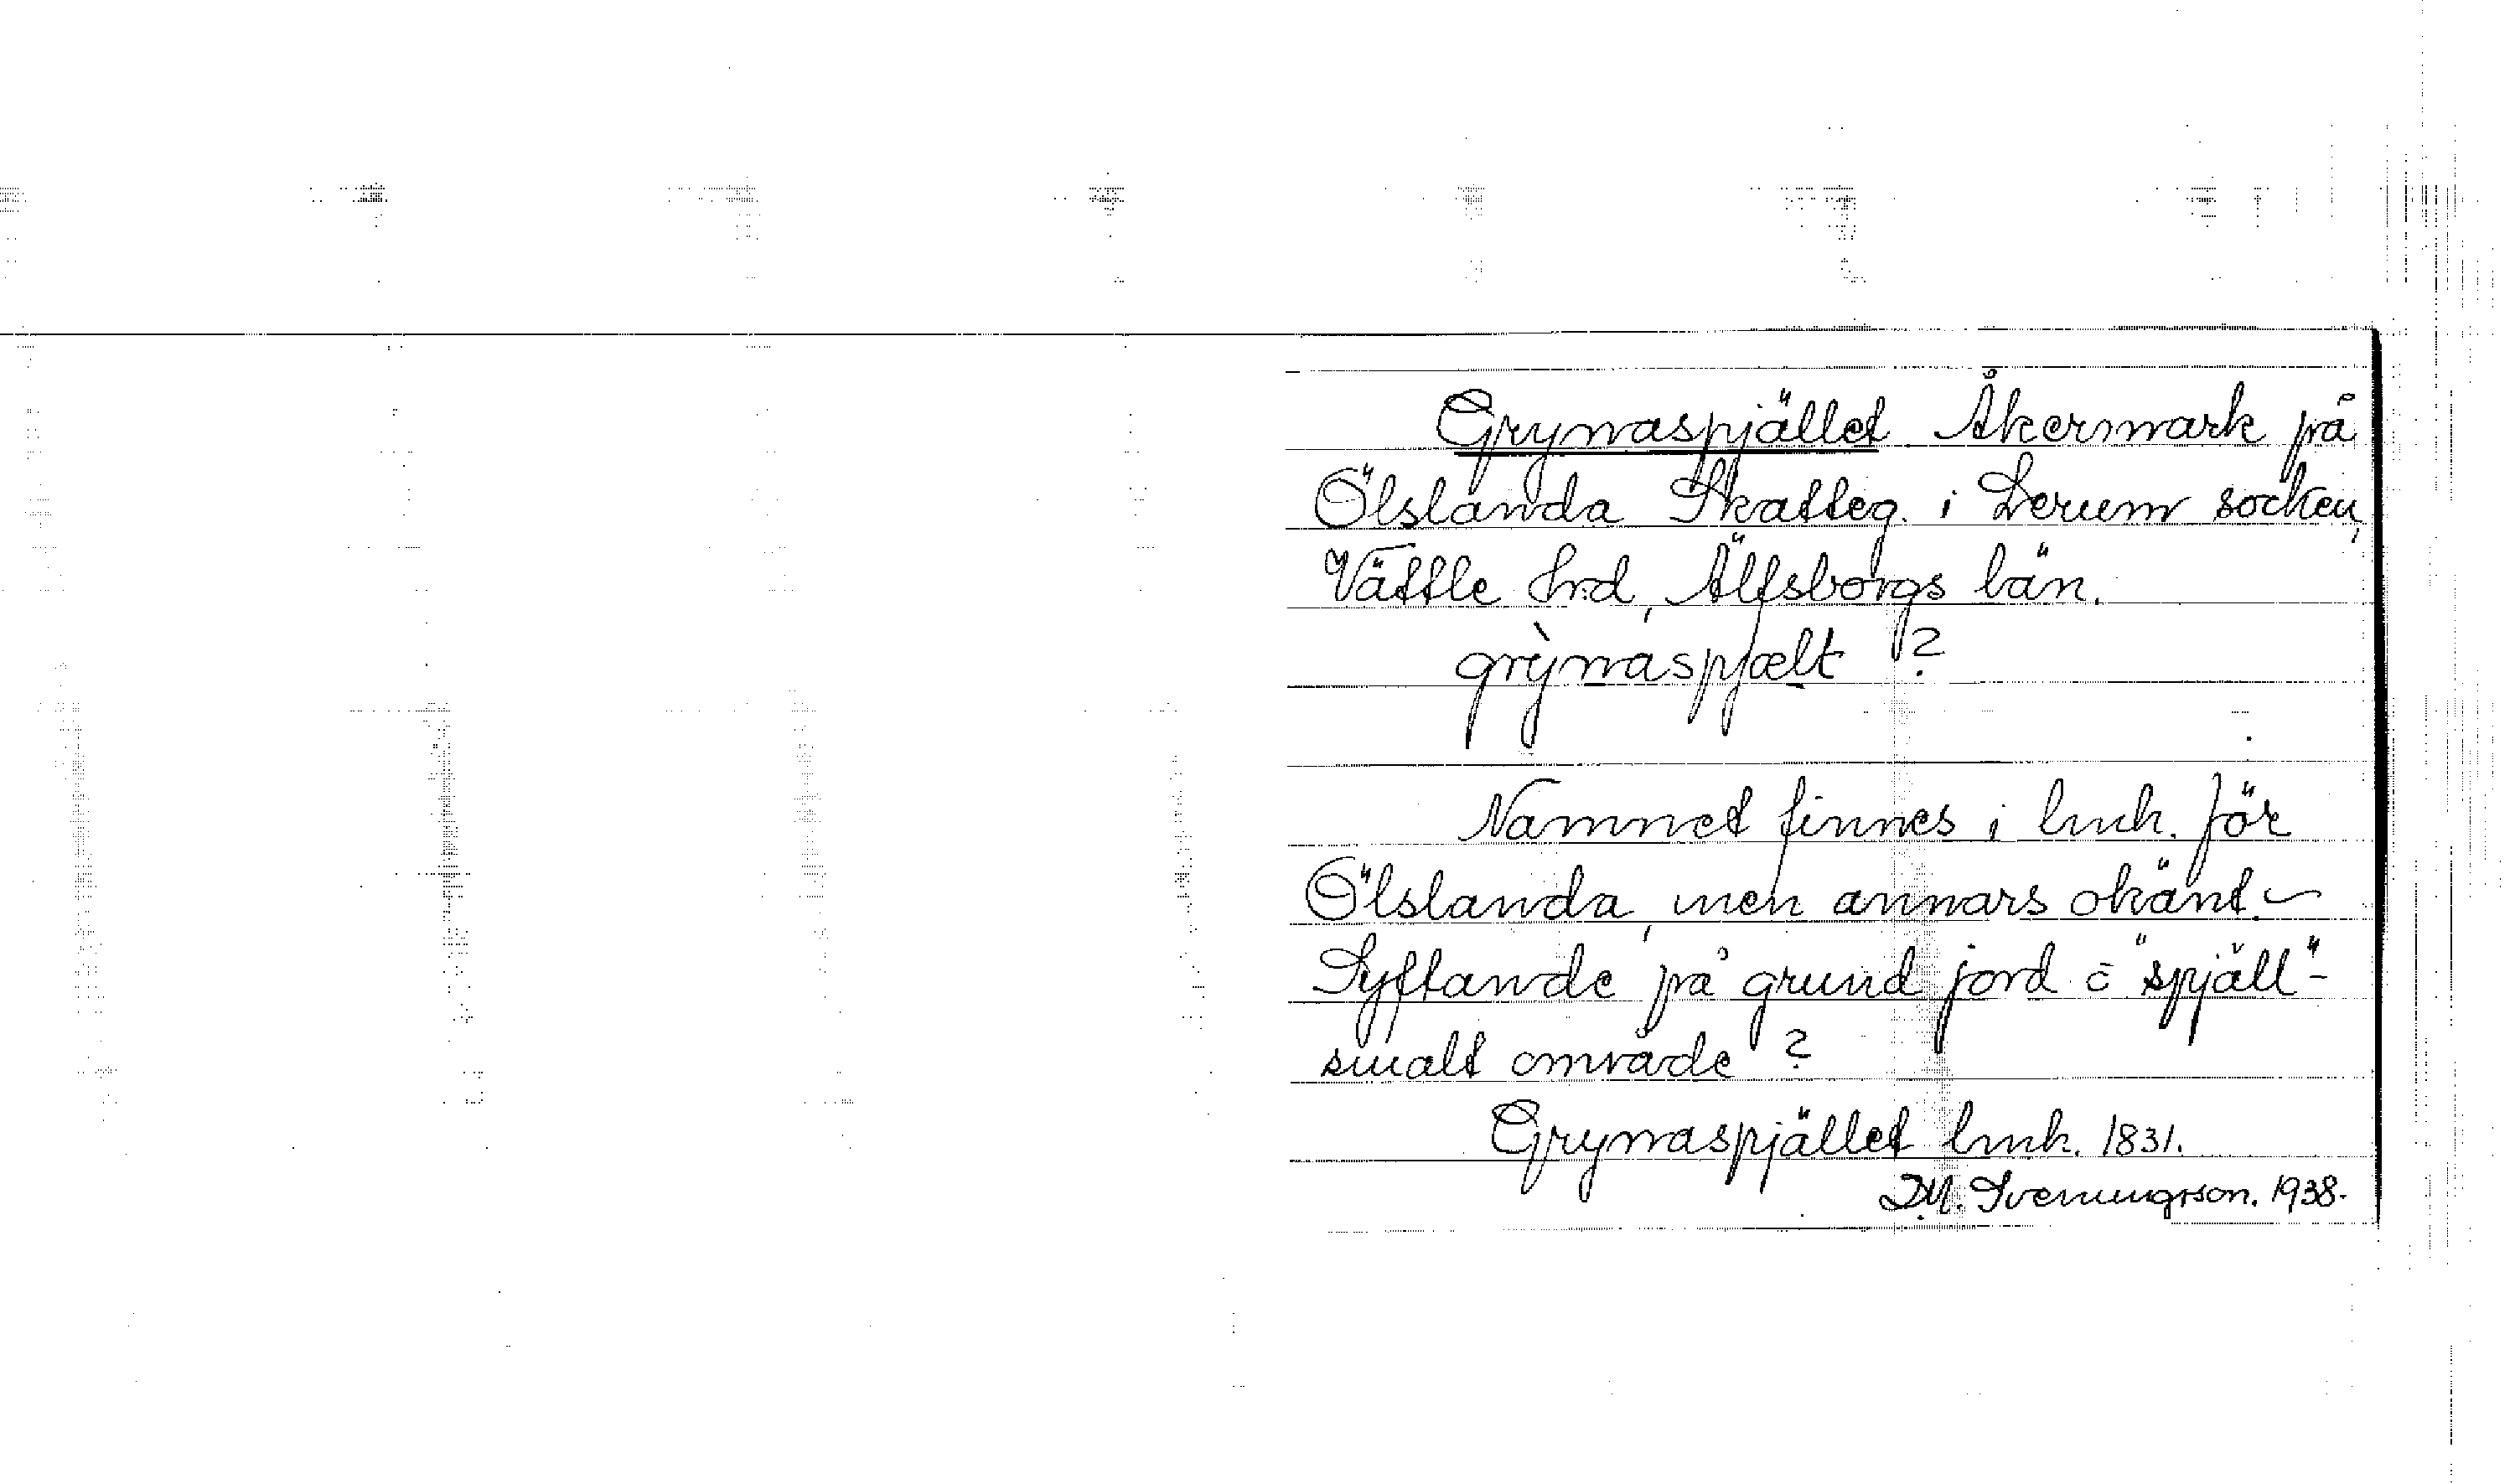 Grynaspjället Åkermark på
Ölslanda Skatteg. i Lerum socken,
Vättle hrd, Älfsborgs län.
grỳnaspjælt ?
Namnet finnes i lmk. för
Ölslanda, men annars okänt. ~
Syftande på grund jord o "spjäll"-
smalt område ?
Grynaspjället lmk. 1831.
D.M. Svenungsson. 1938.